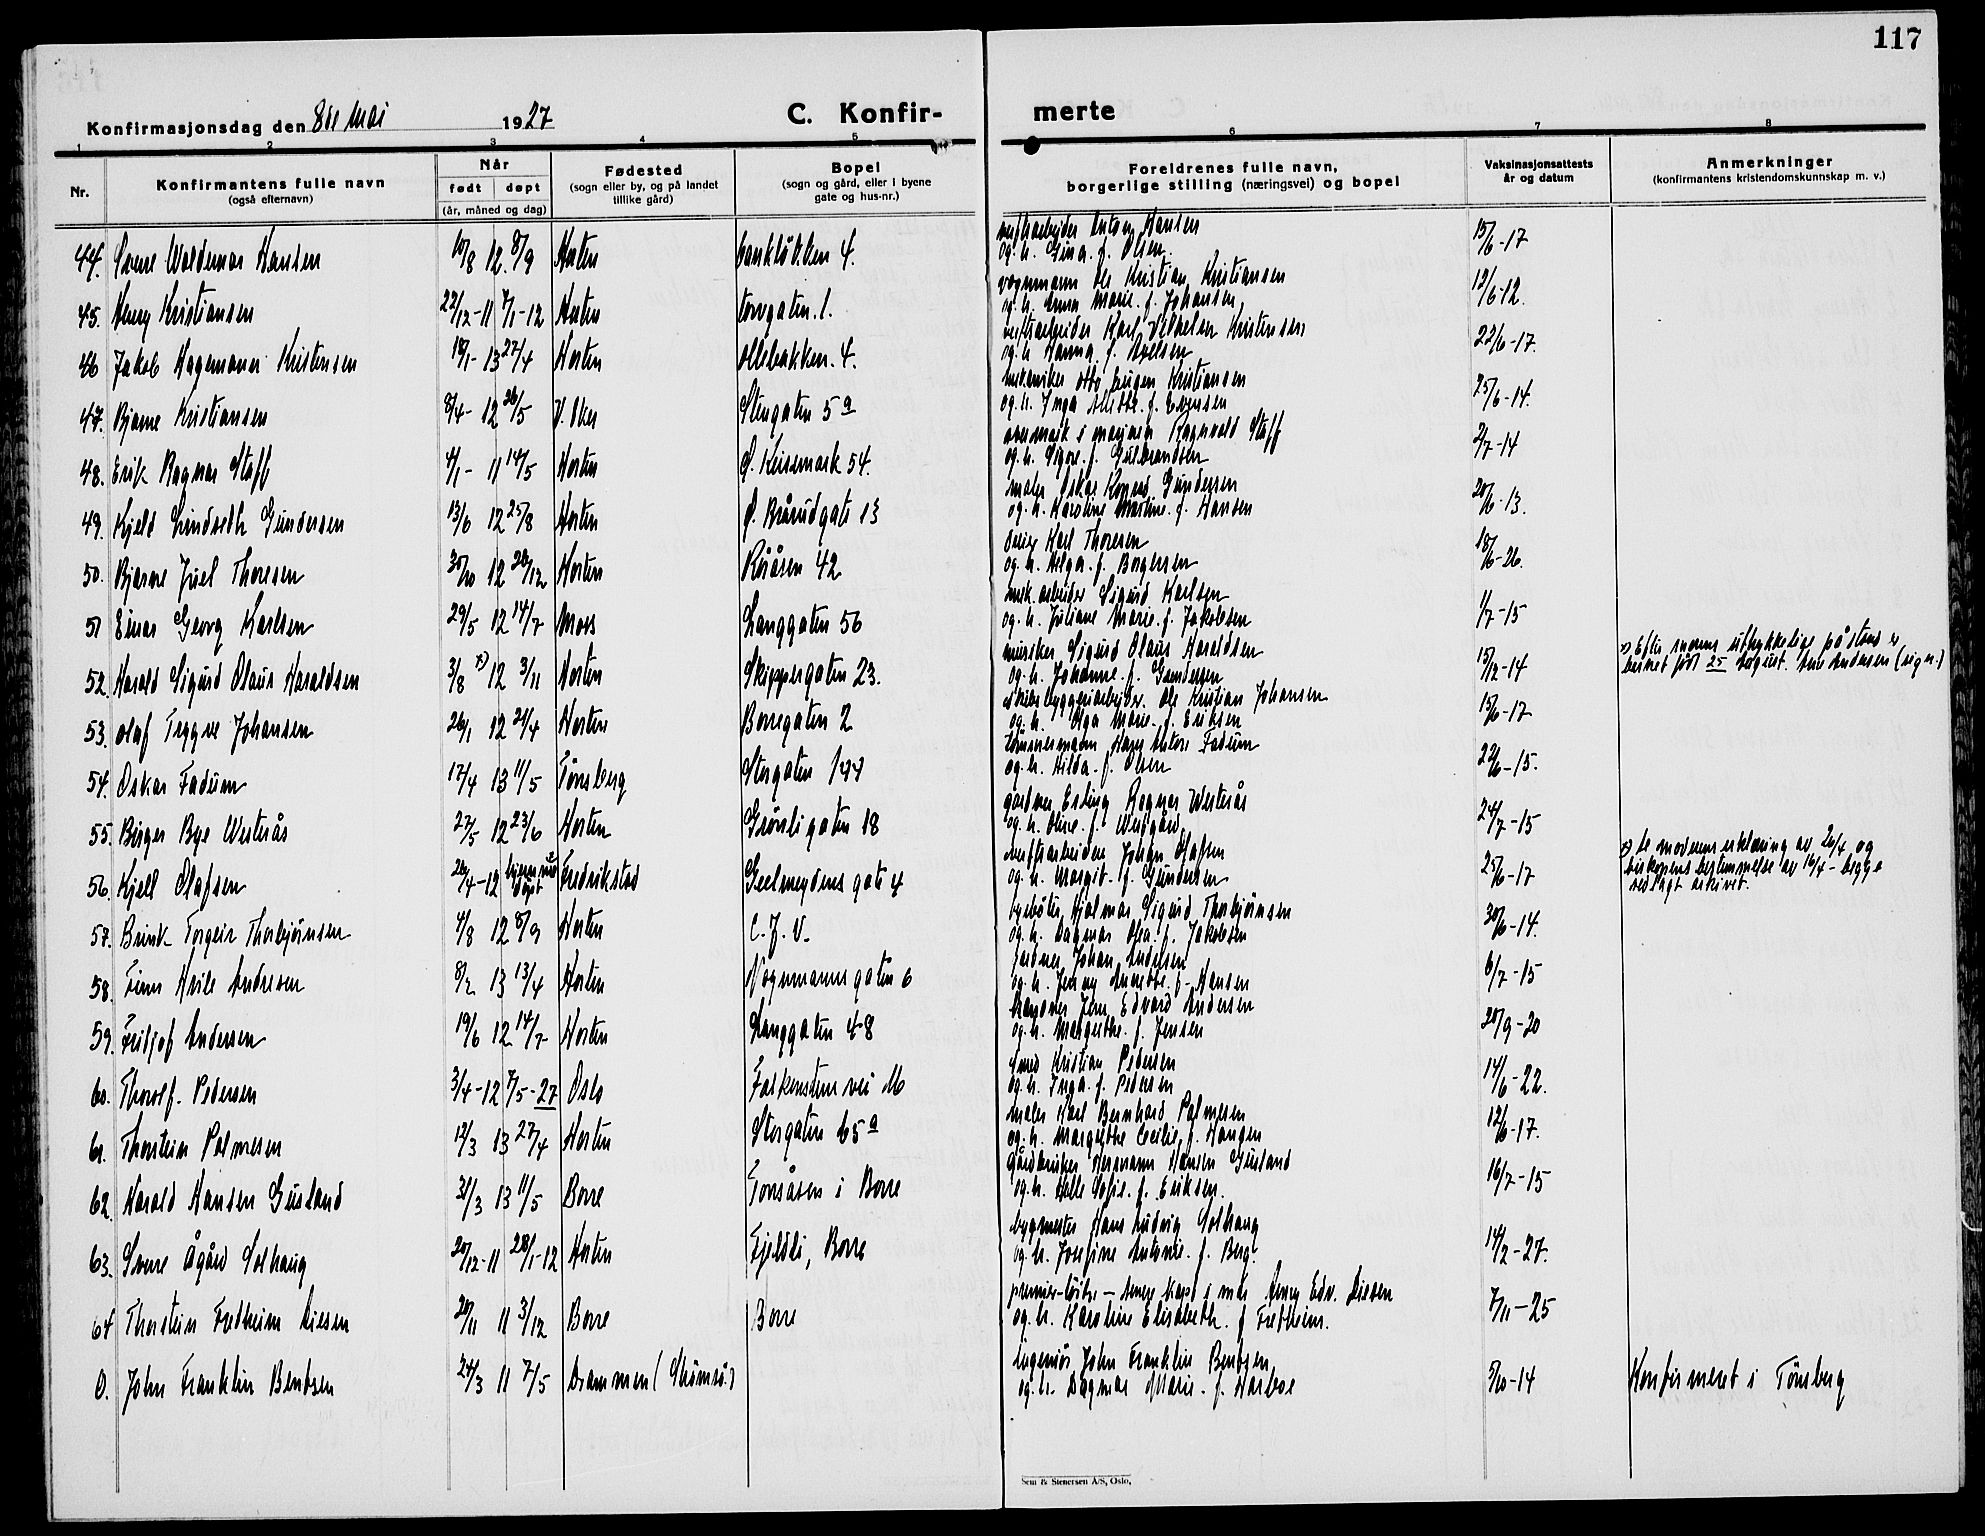 117
Konfirmasjonsdag den 8de Mai 1927
C. Konfir-
merte
1 2 3 4 5 6 7 8
Nr.
Konfirmantens fulle navn
(også efternavn)
Når
født døpt
(år, måned og dag)
Fødested
(sogn eller by, og på landet
tillike gård)
Bopel
(sogn og gård, eller i byene
gate og hus-nr.)
Foreldrenes fulle navn,
borgerlige stilling (næringsvei) og bopel
Vaksinasjonsattests
år og datum
Anmerkninger
(konfirmantens kristendomskunnskap m. v.)
verftsarbeider Anton Hansen
44. Sverre Waldemar Hansen 10/8 12 8/9 Horten Bankløkken 4. og h. Gina f. Olsen 15/6-17
vognmann Ole Kristian Kristiansen
45. Henry Kristiansen 22/12-11 7/1-12 Horten Torvgaten 1. og h. Anna Marie f. Johansen 12/6-12.
verftsarbeider Karl Kristensen
46 Jakob Hagemann Kristensen 18/1-13 27/4 Horten Ollebakken. 4. og h. Hanna f. Axelsen 22/6-17.
mekaniker Otto Eugen Kristiansen
47. Bjarne Kristiansen 8/4-12 26/5 V. Aker Stengaten 5a og h. Inga f. Evensen 25/6-14.
i marinen Ragnvald Staff
48. Erik Ragnar Staff 4/1-11 14/5 Horten Ø. Keisemark 54. og h. Signe f. Gulbrandsen 2/7-14
maler Oskar Konrad Gundersen
49. Kjeld Lindseth Gundersen 13/6 12 25/8 Horten Ø. Bråråudgate 13 og h. Karoline Martine f. Hansen 20/6-13.
Karl Thoresen
50. Bjarne Juel Thoresen 30/10 12 26/12 Horten Røråsen 42 og h. Helga f. Borgersen 18/6-26.
mek. arbeider Sigurd Karlsen
51 Einar Georg Karlsen 29/5 12 14/7 Moss Langgaten 56 og h. Juliane Marie f. Jakobsen 1/7-15
musiker Sigurd Olaus Haraldsen
52. Harald Sigurd Olaus Haraldsen 3/8 x) 12 3/11 Horten Skippergaten 23. og h. Johanne f. Gundersen 15/12-14
x) Efter morens uttrykkelige påstand er
barnet født 25 august. Andersen (sign.)
skibsbyggeriarbeider Ole Kristian Johansen
53. Olaf Trygve Johansen 26/1 12 21/4 Horten Borregaten 2 og h. Olga Marie f. Eriksen 15/6-17
tømmermann Hans Antore Fadum
54. Oskar Fadum 17/4 13 11/5 Tønsberg Storgaten 144 og h. Hilda f. Olsen 22/6-15.
gartner Erling Ragnar Westerås
55. Birger Bye Westerås 27/5 12 23/6 Horten Grønligaten 18 og h. Oline f. 24/7-15
verftsarbeider Johan Olafsen
56. Kjell Olafsen 26/4-12 hjemmedøpt Fredrikstad Geelmeydens gate 4 og h. Margit f. Gundersen 25/6-17
x) Se moderens erklæring av 26/4 og
biskopens bestemmelse av 16/4 - begge
vedlagt arkivet.
Hjalmar Sigurd Thorbjørnsen
57. Brink Torgeir Thorbjørnsen 4/8 12 8/9 Horten C. J. V. og h. Dagmar Olea f. Jakobsen 30/6-14.
Johan Andresen
58. Finn Hvile Andresen 8/2 13 13/4 Horten Vognmannsgaten 6 og h. Jenny Annette f. Hansen 6/7-15
Jens Edvard Andersen
59. Fritjof Andersen 19/6 12 14/7 Horten Langgaten 48 og h. Margrethe f. Jensen 20/9-20
Smed Kristian Pedersen
60. Thorolf Pedersen 3/4-12 7/5-27 Oslo Falkensteins vei og h. Inga f. Pedersen 14/6-22.
maler Karl Bernhard Palmesen
61. Thorstein Palmesen 12/3 13 27/4 Horten Storgaten 65a og h. Margrethe Cecilie f. Haugen 12/6-17.
Gårdbruker Hermann Hansen Gusland
62. Harald Hansen Gusland 31/3 13 11/5 Borre Tonsåsen i Borre og h. Helle Sofie f. Eriksen. 16/7-15
bygmester Hans Ludvig Solhaug
63. Sverre Ågård Solhaug 20/12-11 28/1-12 Horten Fjeldli, Borre og h. Josefine Antonie f. Berg. 14/2-27.
premier-løitn. - senere kapt. i mar. Henry Edv. Diesen
64 Thorstein Fretheim Diesen 20/11 11 3/12 Borre Borre og h. Karoline Elisabeth f Fretheim. 7/11-25
Ingeniør John Franklin Bentsen
0. John Franklin Bentsen 24/3 11 7/5 Drammen (Strømsø) og h. Dagmar Marie f. Harboe 5/10-14 Konfirmert i Tønsberg
Sem & Stenersen A/S, Oslo.